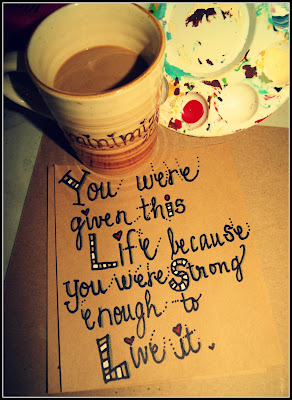 minimis
You were
given this
Life because
you were Strong
enough to
Live it.